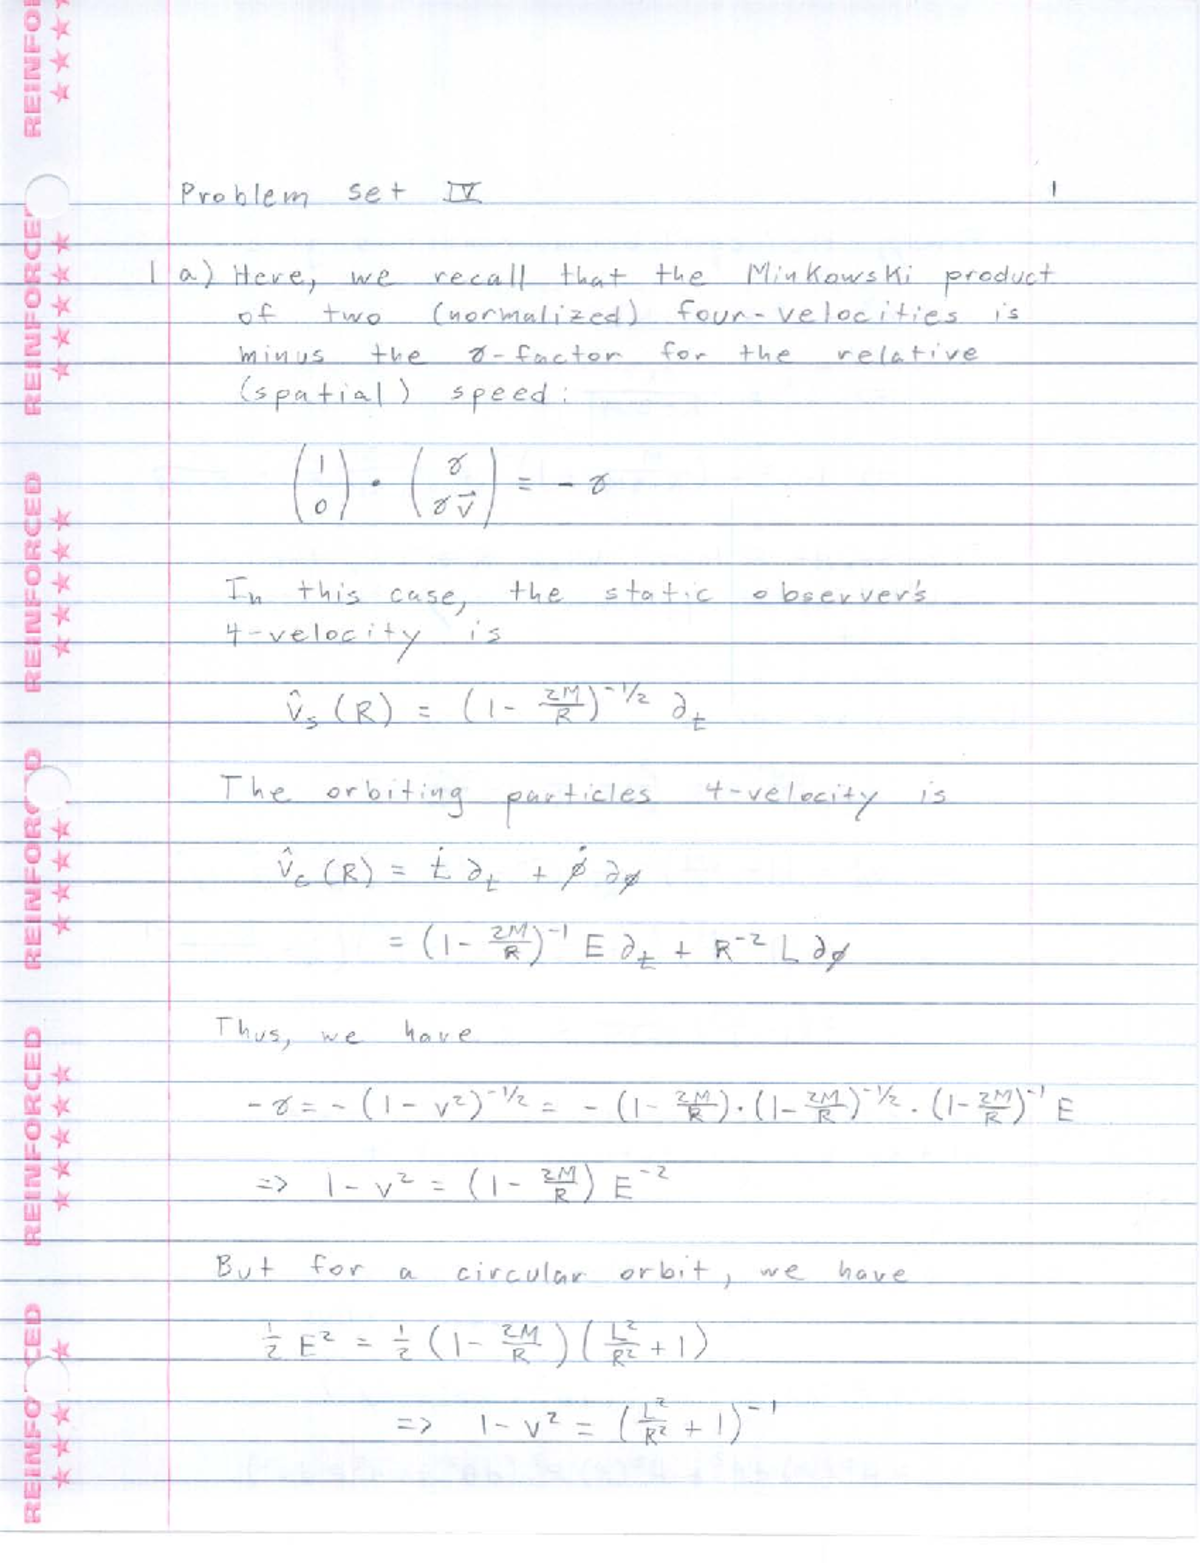 REINFORCED
REINFORCED
REINFORCED
REINFORCED
REINFORCED
REINFORCED
Problem set IV 1
1 a) Here, we recall that the Minkowski product
of two (normalized) four-velocities is
minus the γ-factor for the relative
(spatial) speed:
(1 0) · (γ γv⃗) = - γ
In this case, the static observer's
4-velocity is
v̂_s (R) = (1 - 2M/R)^(-1/2) ∂_t
The orbiting particles 4-velocity is
v̂_c (R) = ṫ ∂_t + φ̇ ∂_φ
= (1 - 2M/R)^(-1) E ∂_t + R^(-2) L ∂_φ
Thus, we have
-γ = - (1 - v²)^(-1/2) = - (1 - 2M/R) · (1 - 2M/R)^(-1/2) · (1 - 2M/R)^(-1) E
=> 1 - v² = (1 - 2M/R) E^(-2)
But for a circular orbit, we have
1/2 E² = 1/2 (1 - 2M/R) (L²/R² + 1)
=> 1 - v² = (L²/R² + 1)^(-1)